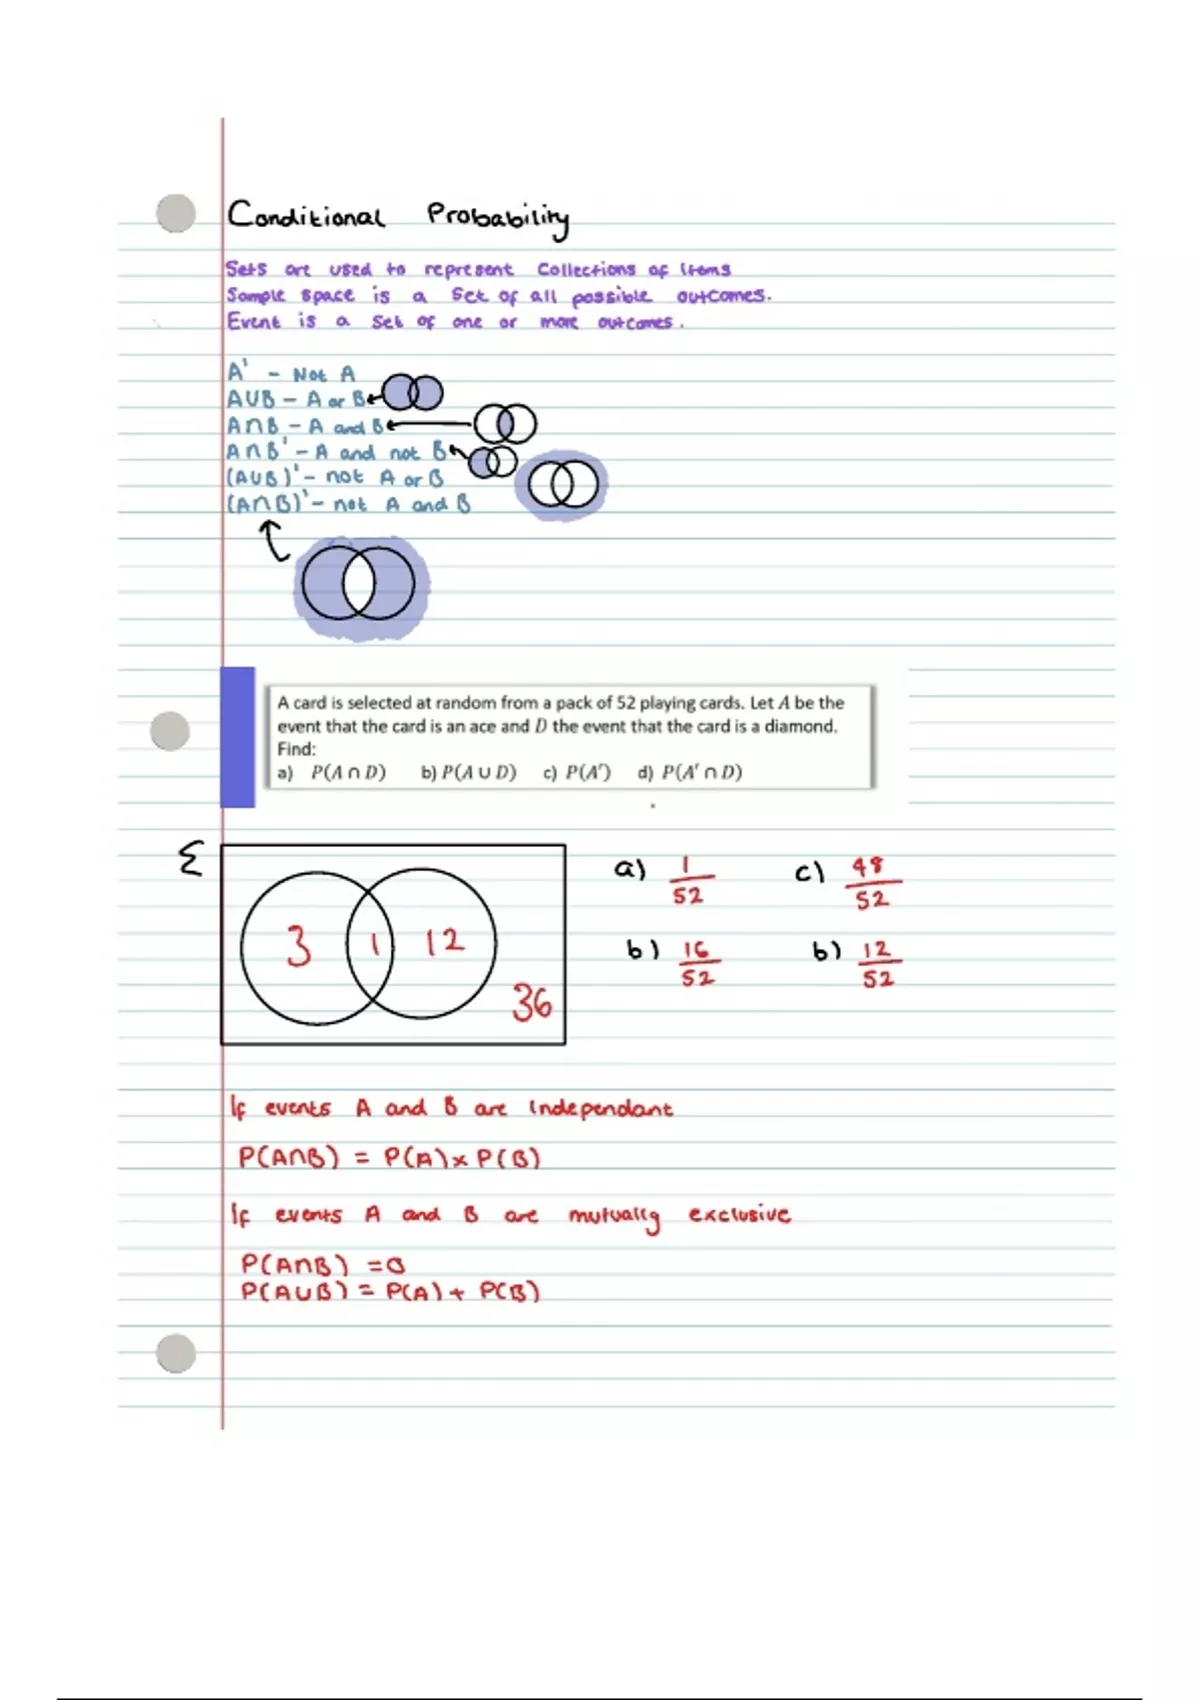 Conditional Probability
Sets are used to represent Collections of Items
Sample space is a Set of all possible outcomes.
Event is a set of one or more outcomes.
A' - Not A
A∪B - A or B
A∩B - A and B
A∩B' - A and not B
(A∪B)' - not A or B
(A∩B)' - not A and B
A card is selected at random from a pack of 52 playing cards. Let A be the
event that the card is an ace and D the event that the card is a diamond.
Find:
a) P(A ∩ D) b) P(A ∪ D) c) P(A') d) P(A' ∩ D)
Ɛ
3 1 12
36
a) 1/52 c) 48/52
b) 16/52 b) 12/52
If events A and B are Independant
P(A∩B) = P(A) × P(B)
If events A and B are mutually exclusive
P(A∩B) = 0
P(A∪B) = P(A) + P(B)